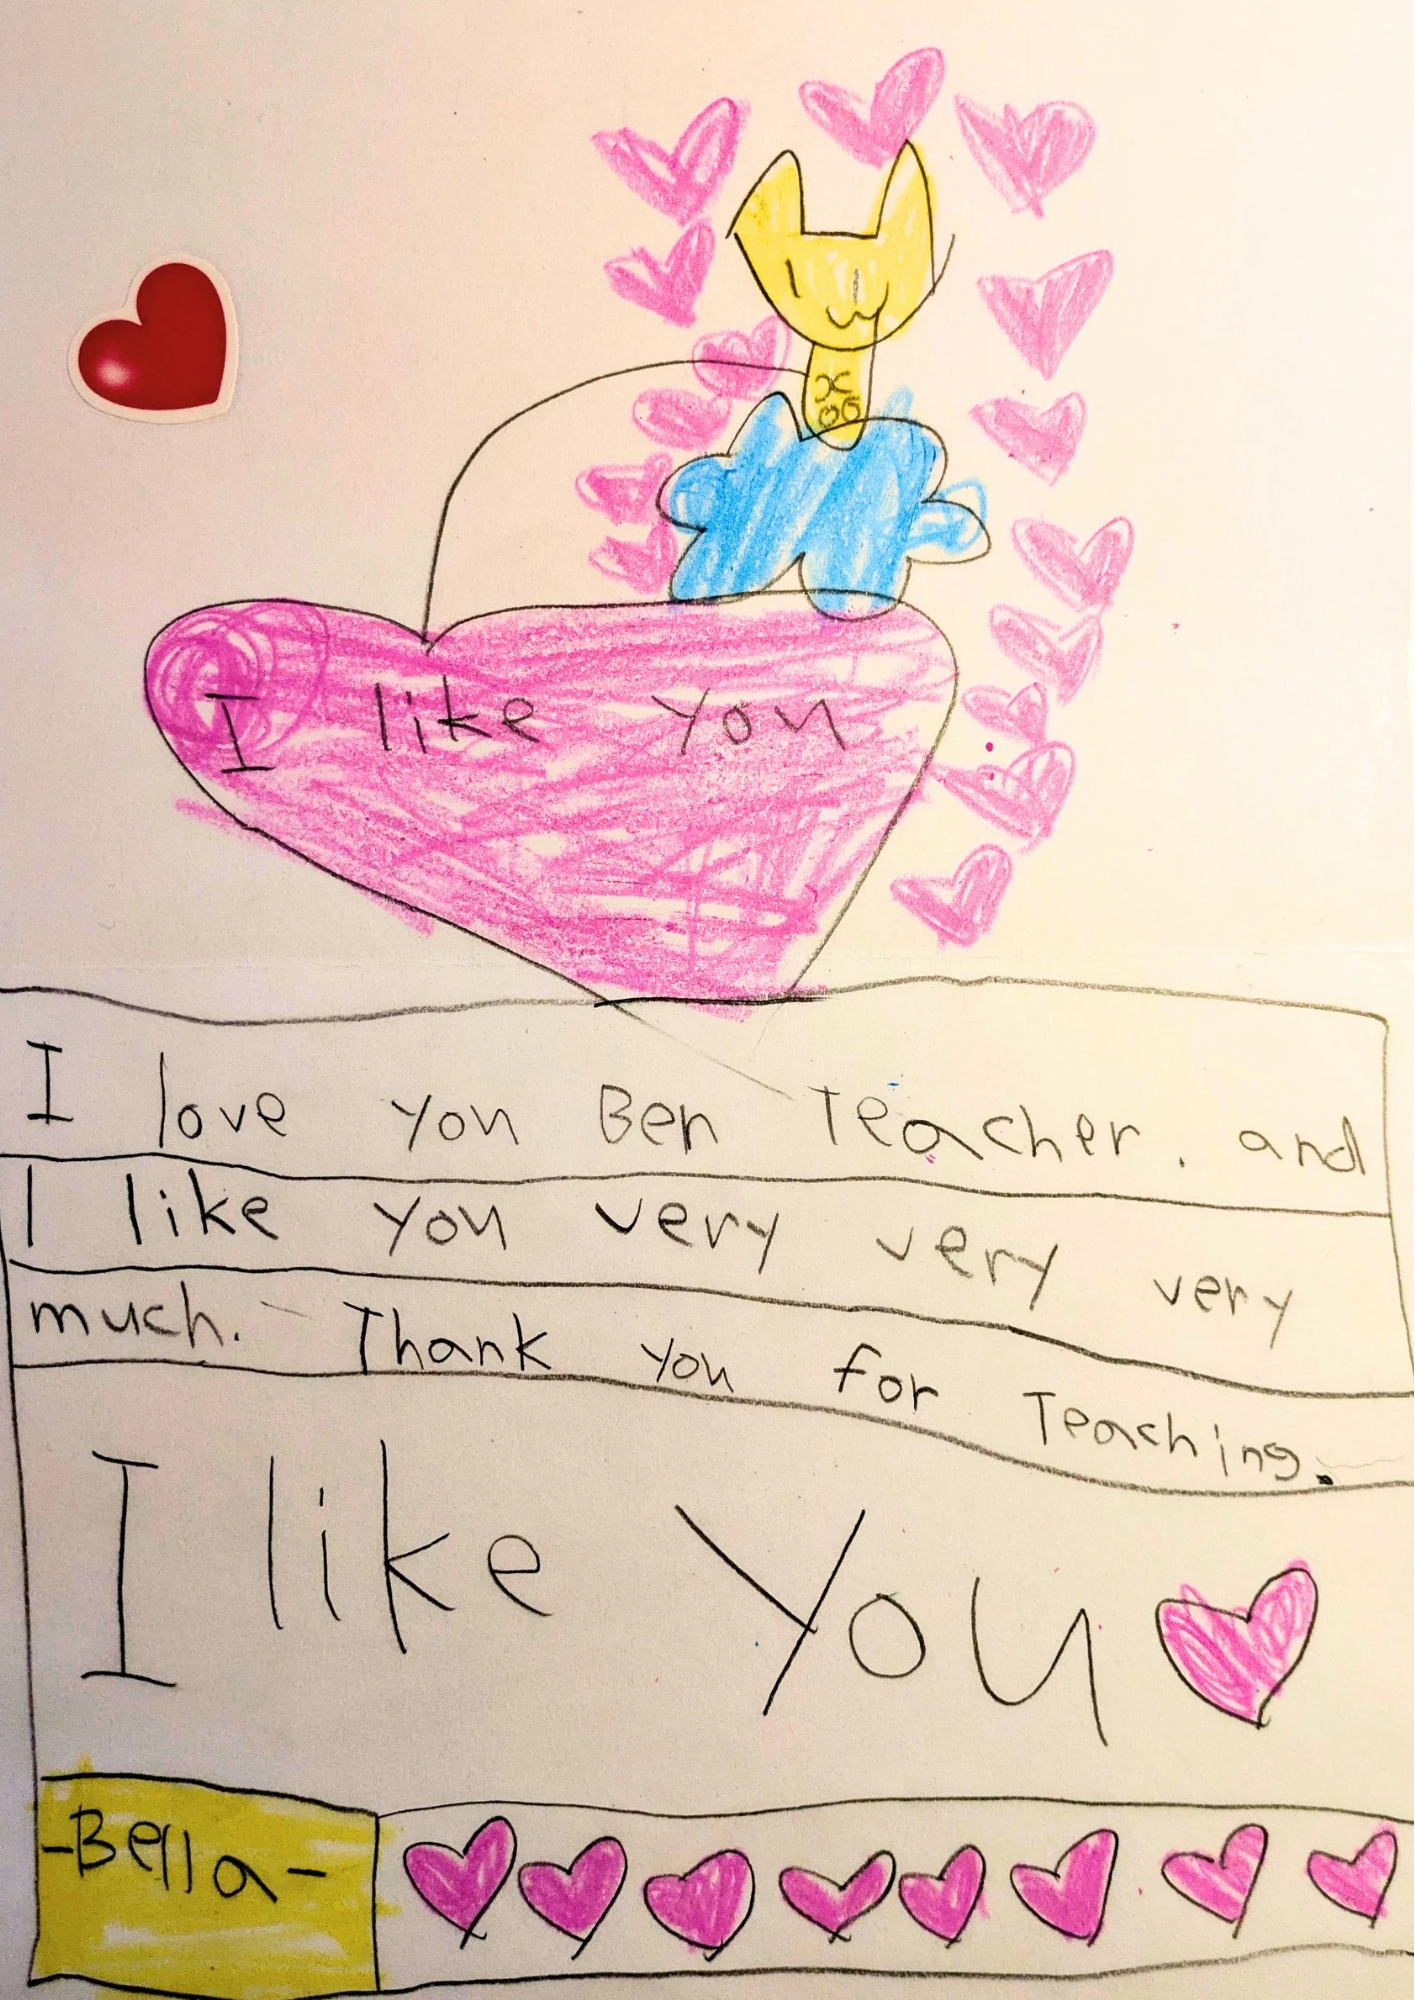 I like you
I love you Ben Teacher. and
I like you very very very
much. Thank you for Teaching.
I like You
-Bella-